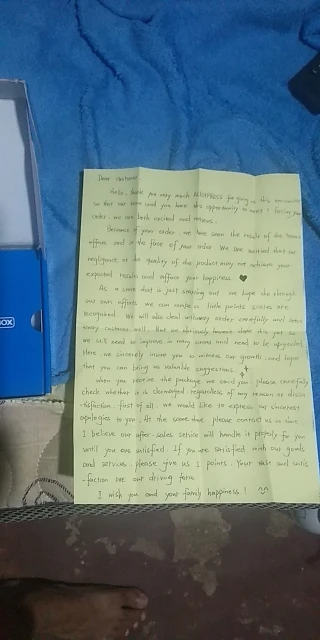 Dear customer
Hello, thank you very much ALIEXPRESS for giving us this encounter
so that our store and you have this opportunity to meet! Facing your
order, we are both excited and nervous.
Because of your order, we have seen the results of the team's
efforts and in the face of your order. We are worried that our
negligence or the quality of the product may not achieve your
expected results and affect your happiness ♥
As a store that is just starting out, we hope that through
our own efforts we can make a little points scores are
recognized. We will also deal with every order carefully and treat
every customer well.
we still need to improve in many areas and need to be upgraded.
Here, we sincerely invite you to witness our growth, and hope
that you can bring us valuable suggestions.
When you receive the package we send you, please carefully
check whether it is damaged regardless of any reason or dissa
-tisfaction, first of all, we would like to express our sincerest
apologies to you. At the same time, please contact us in time.
I believe our after-sales service will handle it properly for you
until you are satisfied. If you are satisfied with our goods
and services, please give us 5 points. Your wish and satis
-faction are our driving force.
I wish you and your family happiness!
BOX